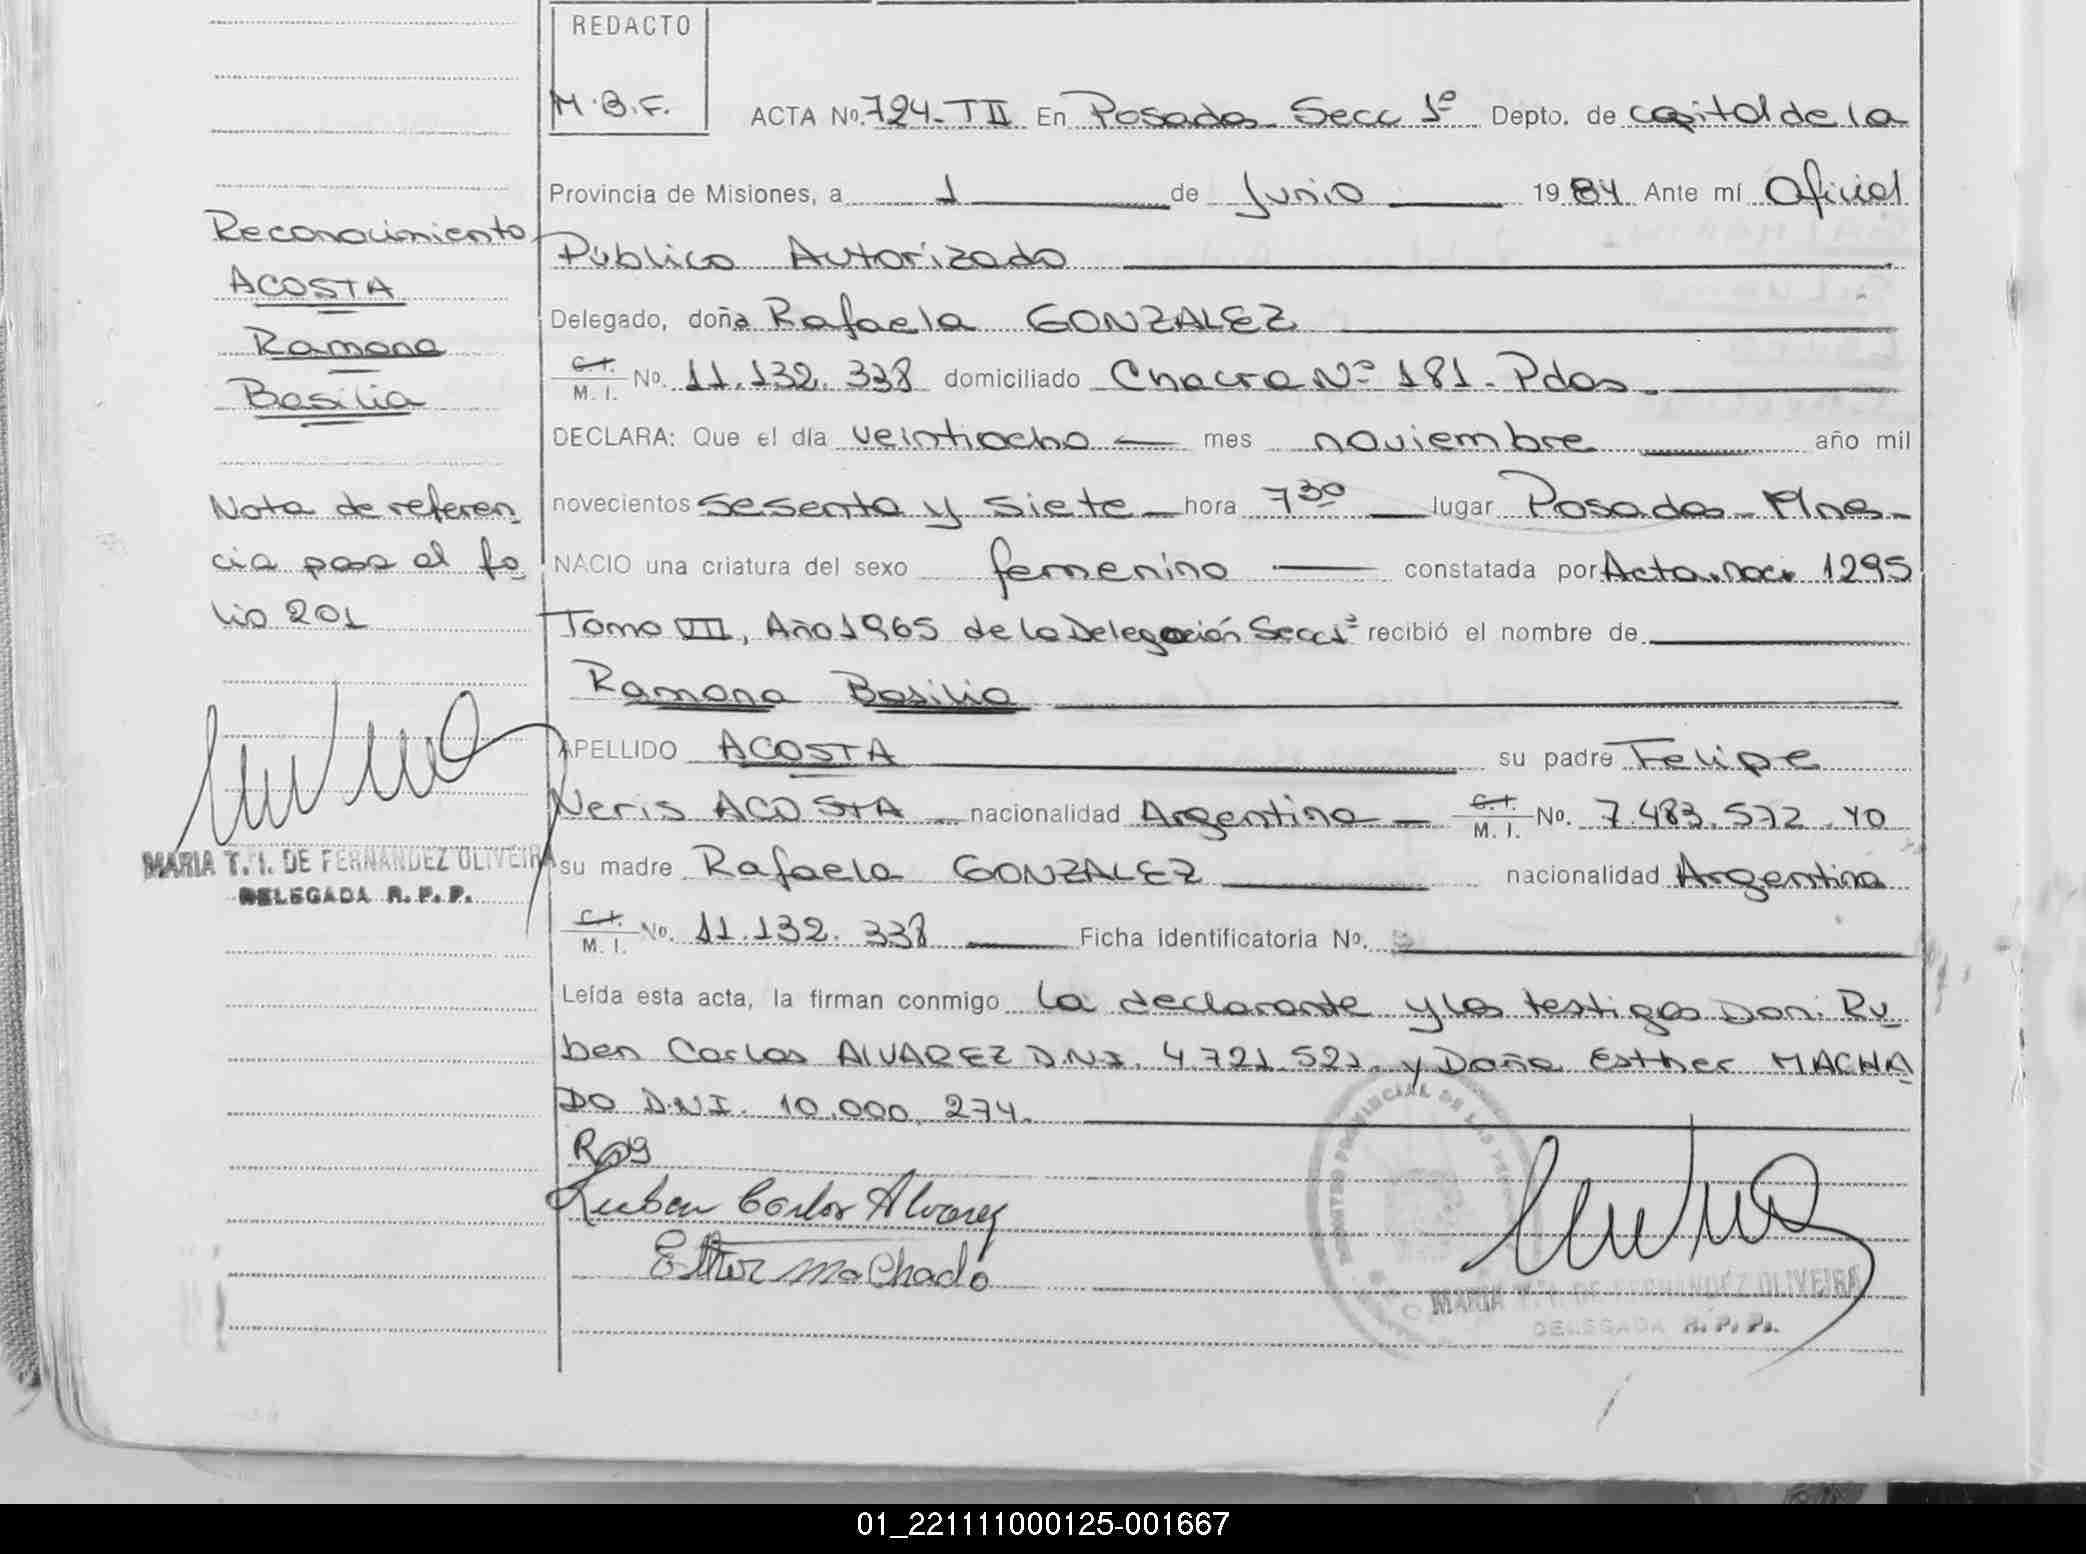 REDACTO
M.B.F.
ACTA No. 724-TII En Posadas Secc 1º Depto. de capital de la
Provincia de Misiones, a 1 de Junio 1984 Ante mí Oficial
Público Autorizado
Delegado, doña Rafaela GONZALEZ
C.I. M. I. No. 11.132.338 domiciliado Chacra Nº 181. Pdas.
DECLARA: Que el día veintiocho mes noviembre año mil
novecientos sesenta y siete hora 7 30 lugar Posadas Mnes
NACIO una criatura del sexo femenino constatada por Acta. nac. 1295
Tomo III, Año 1965 de la Delegación Secc 1ª recibió el nombre de
Ramona Basilia
APELLIDO ACOSTA su padre Felipe
Neris ACOSTA nacionalidad Argentina C.I. M. I. No. 7.483.572
su madre Rafaela GONZALEZ nacionalidad Argentina
C.I. M. I. No. 11.132.338 Ficha identificatoria No.
Leída esta acta, la firman conmigo la declarante y los testigos Don: Ru
ben Carlos ALVAREZ D.N.I. 4.721.521. y Doña Esther MACHA
DO D.N.I. 10.000.274.
Ruben Carlos Alvarez
Esther Machado
MARIA T. I. DE FERNANDEZ OLIVEIRA
DELEGADA R. P. P.
Reconocimiento
ACOSTA
Ramona
Basilia
Nota de referen
cia pasa al fo
lio 201
MARIA T. I. DE FERNANDEZ OLIVEIRA
DELEGADA R. P. P.
01_221111000125-001667